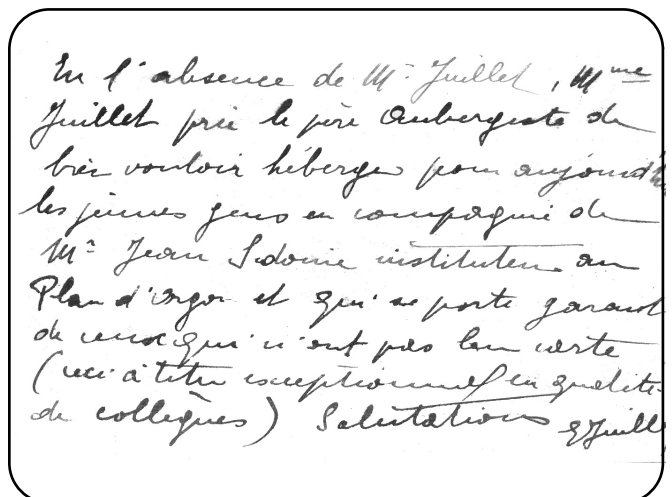 En l'absence de Mr Juillet, Mme
Juillet prie le père Aubergiste de
bien vouloir héberger pour aujourd'hui
les jeunes gens en compagnie de
Mr Jean Sidoine instituteur au
Plan d'Orgon et qui se porte garant
de ceux qui n'ont pas leur carte
(ceci à titre exceptionnel en qualité
de collègues) Salutations